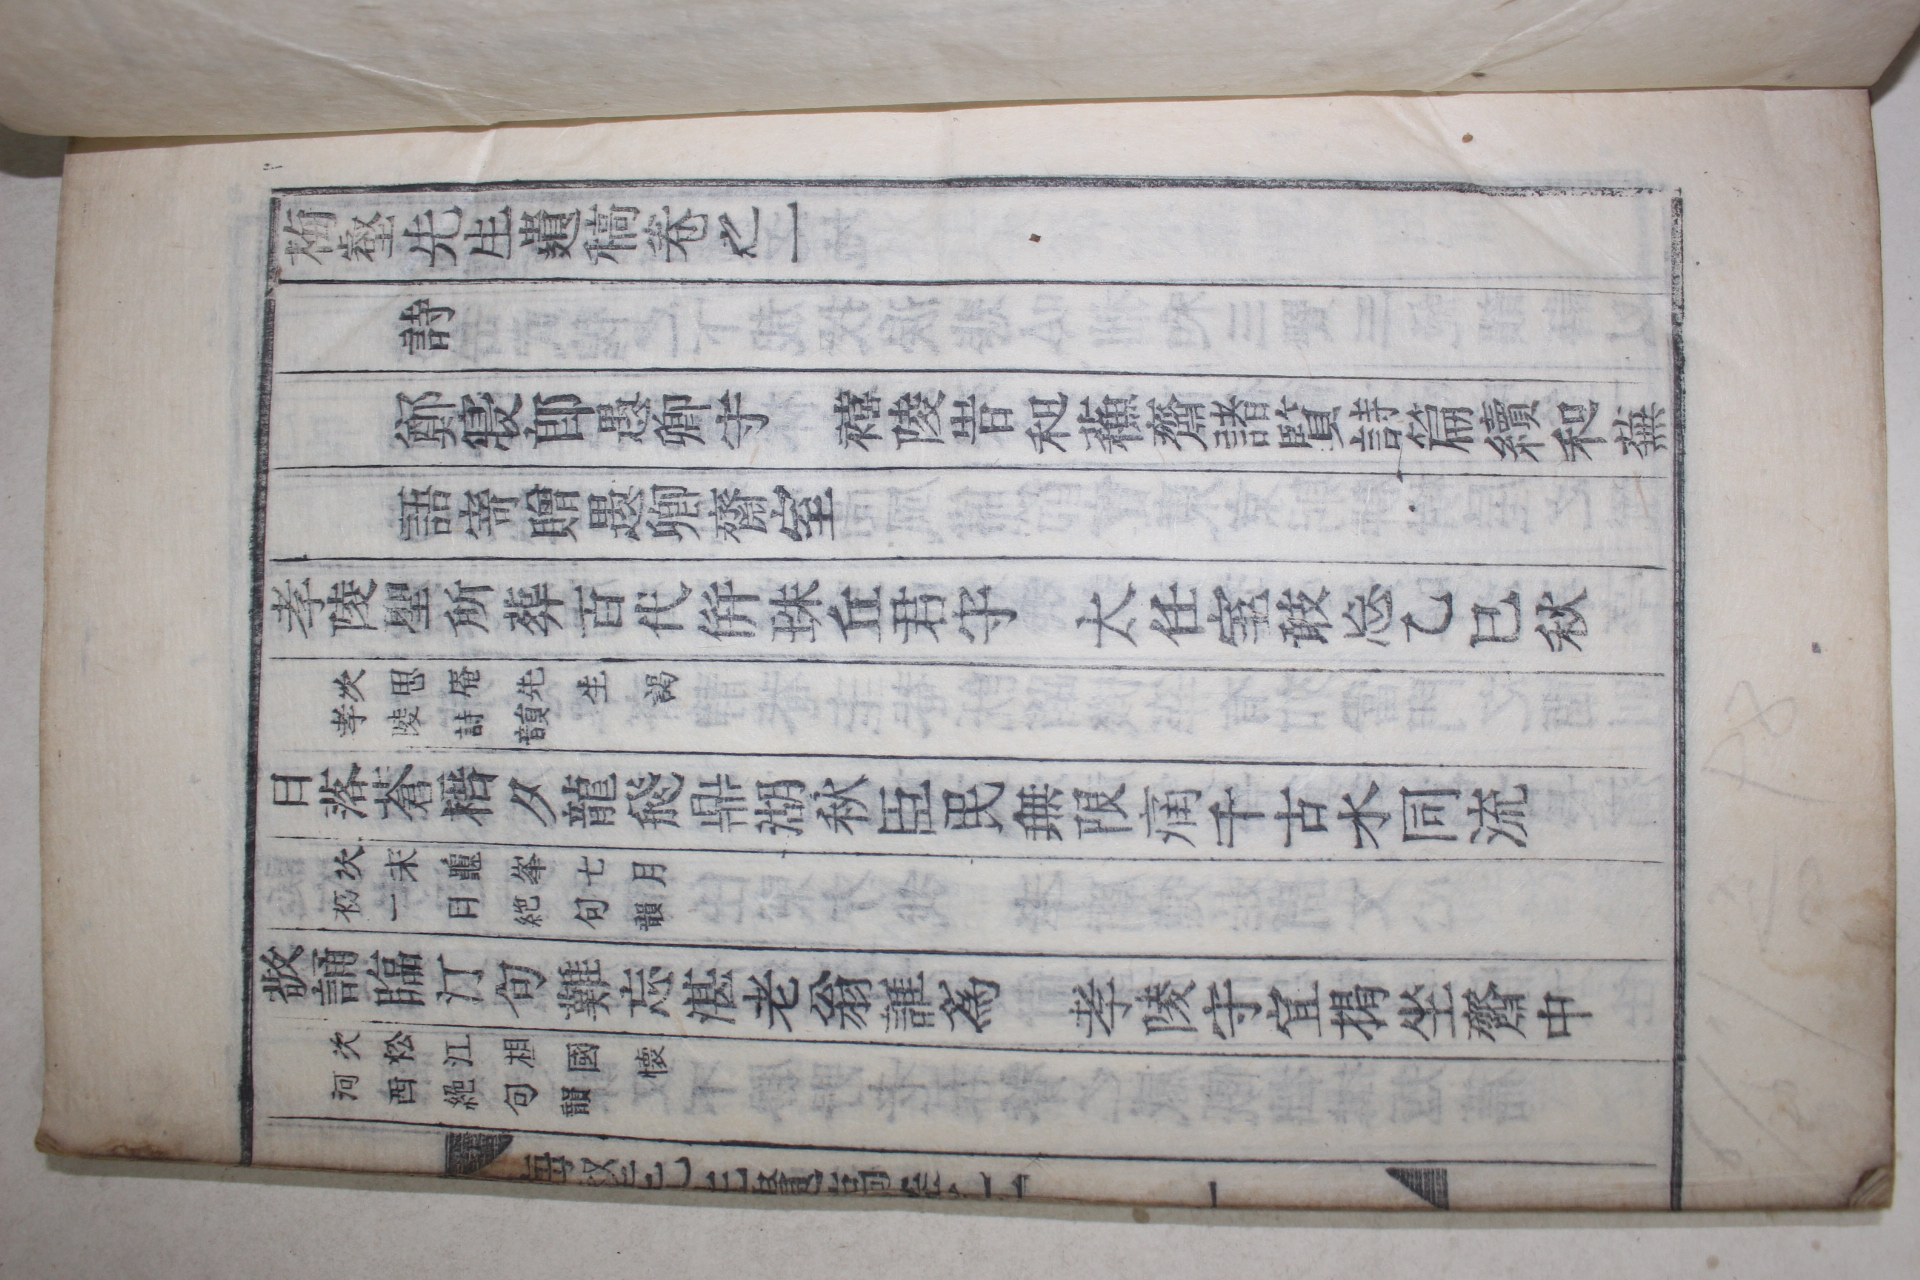 梅壑先生遺稿卷之一
詩
鄭寢郎愚卿守 禧陵告和蘓齋諸賢詩篇續和蕪
語寄贈愚卿齋室
孝陵聖所葬百代倂珠丘君守 太任室敢忘乙巳秋
次思庵先生謁
孝陵詩韻
日落蒼梧夕龍飛鼎湖秋臣民無限痛千古水同流
次宋龜峯七月
初一日絶句韻
敬誦臨汀句難忘湛老翁誰爲 孝陵守宜揭坐齋中
次松江相國懷
河西絶句韻
梅壑先生遺稿卷之一
一